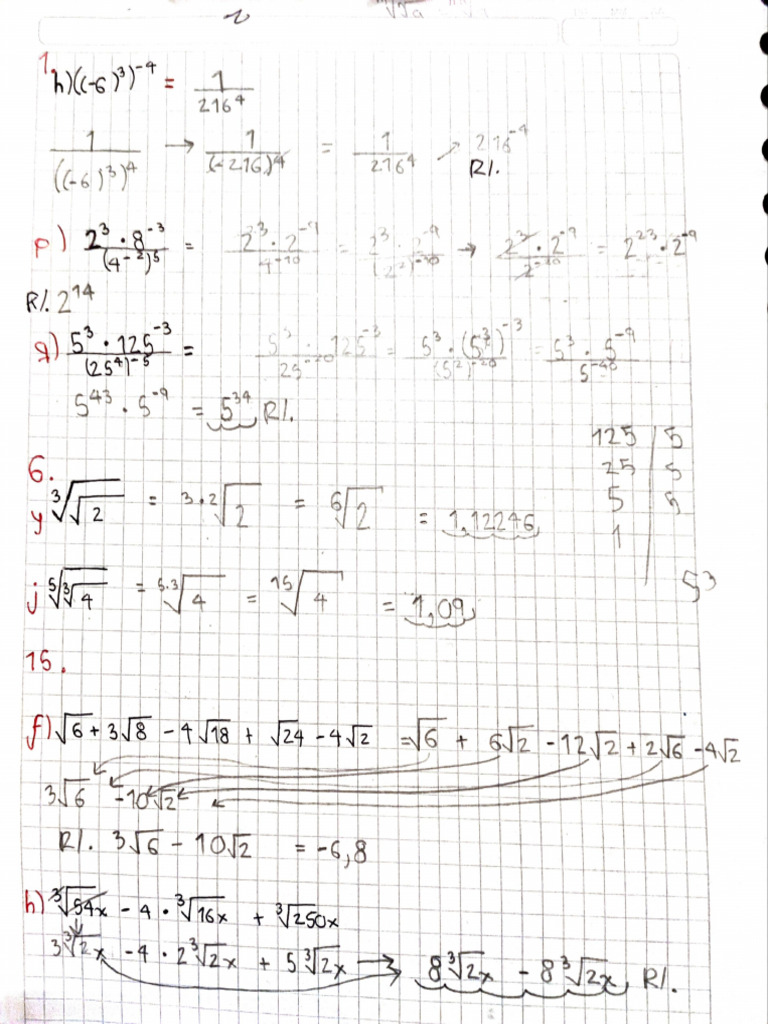 2
1.
h) ((-6)³)⁻⁴ = 1/216⁴
1/((-6)³)⁴ → 1/(-216)⁴ = 1/216⁴ ↗ 216⁻⁴
R/.
p) 2³ · 8⁻³/(4⁻²)⁵ = 2³ · 2⁻⁹/4⁻¹⁰ = 2³ · 2⁻⁹/(2²)⁻¹⁰ → 2³ · 2⁻⁹/2⁻²⁰ = 2²³ · 2⁻⁹
R/. 2¹⁴
q) 5³ · 125⁻³/(25⁴)⁻⁵ = 5³ · 125⁻³/25⁻²⁰ = 5³ · (5³)⁻³/(5²)⁻²⁰ = 5³ · 5⁻⁹/5⁻⁴⁰
5⁴³ · 5⁻⁹ = 5³⁴ R/.
125 | 5
25 | 5
5 | 5
1 |
5³
6.
y ³√√2 = ³·²√2 = ⁶√2 = 1,12246
j ⁵√³√4 = ⁵·³√4 = ¹⁵√4 = 1,09
15.
f) √6 + 3√8 - 4√18 + √24 - 4√2 = √6 + 6√2 - 12√2 + 2√6 - 4√2
3√6 - 10√2
R/. 3√6 - 10√2 = -6,8
h) ³√54x - 4 · ³√16x + ³√250x
3³√2x - 4 · 2³√2x + 5³√2x → 8³√2x - 8³√2x R/.